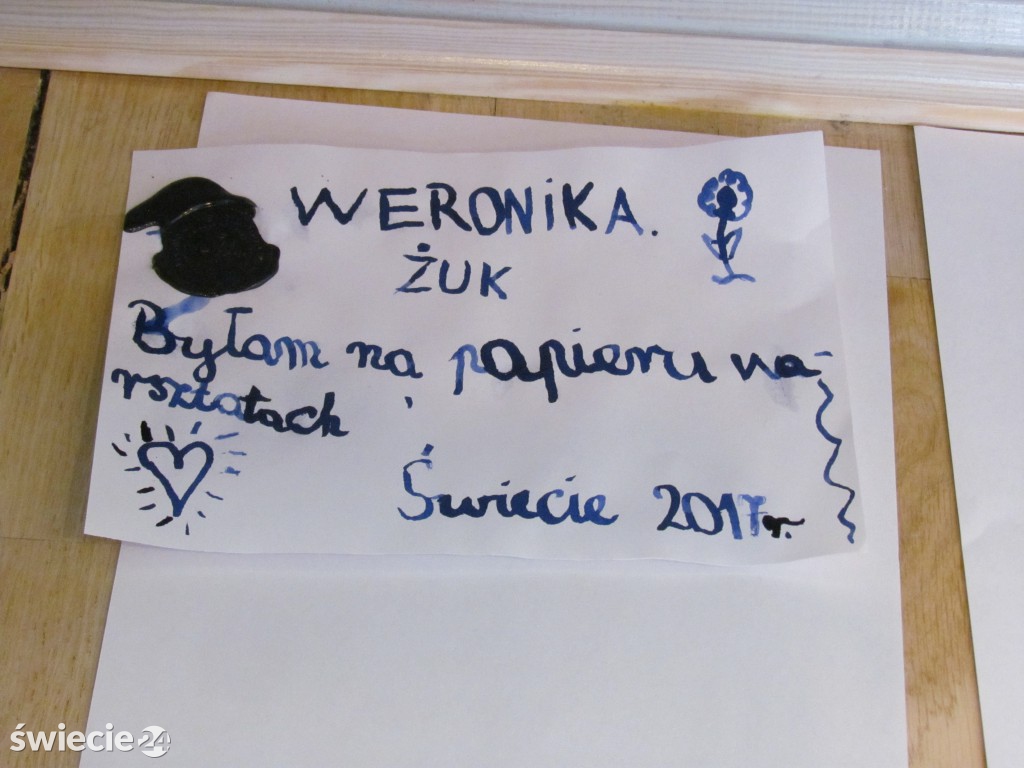 WERONIKA.
ŻUK
Byłam na papieru wa-
rsztatach
Świecie 2017r.
świecie24